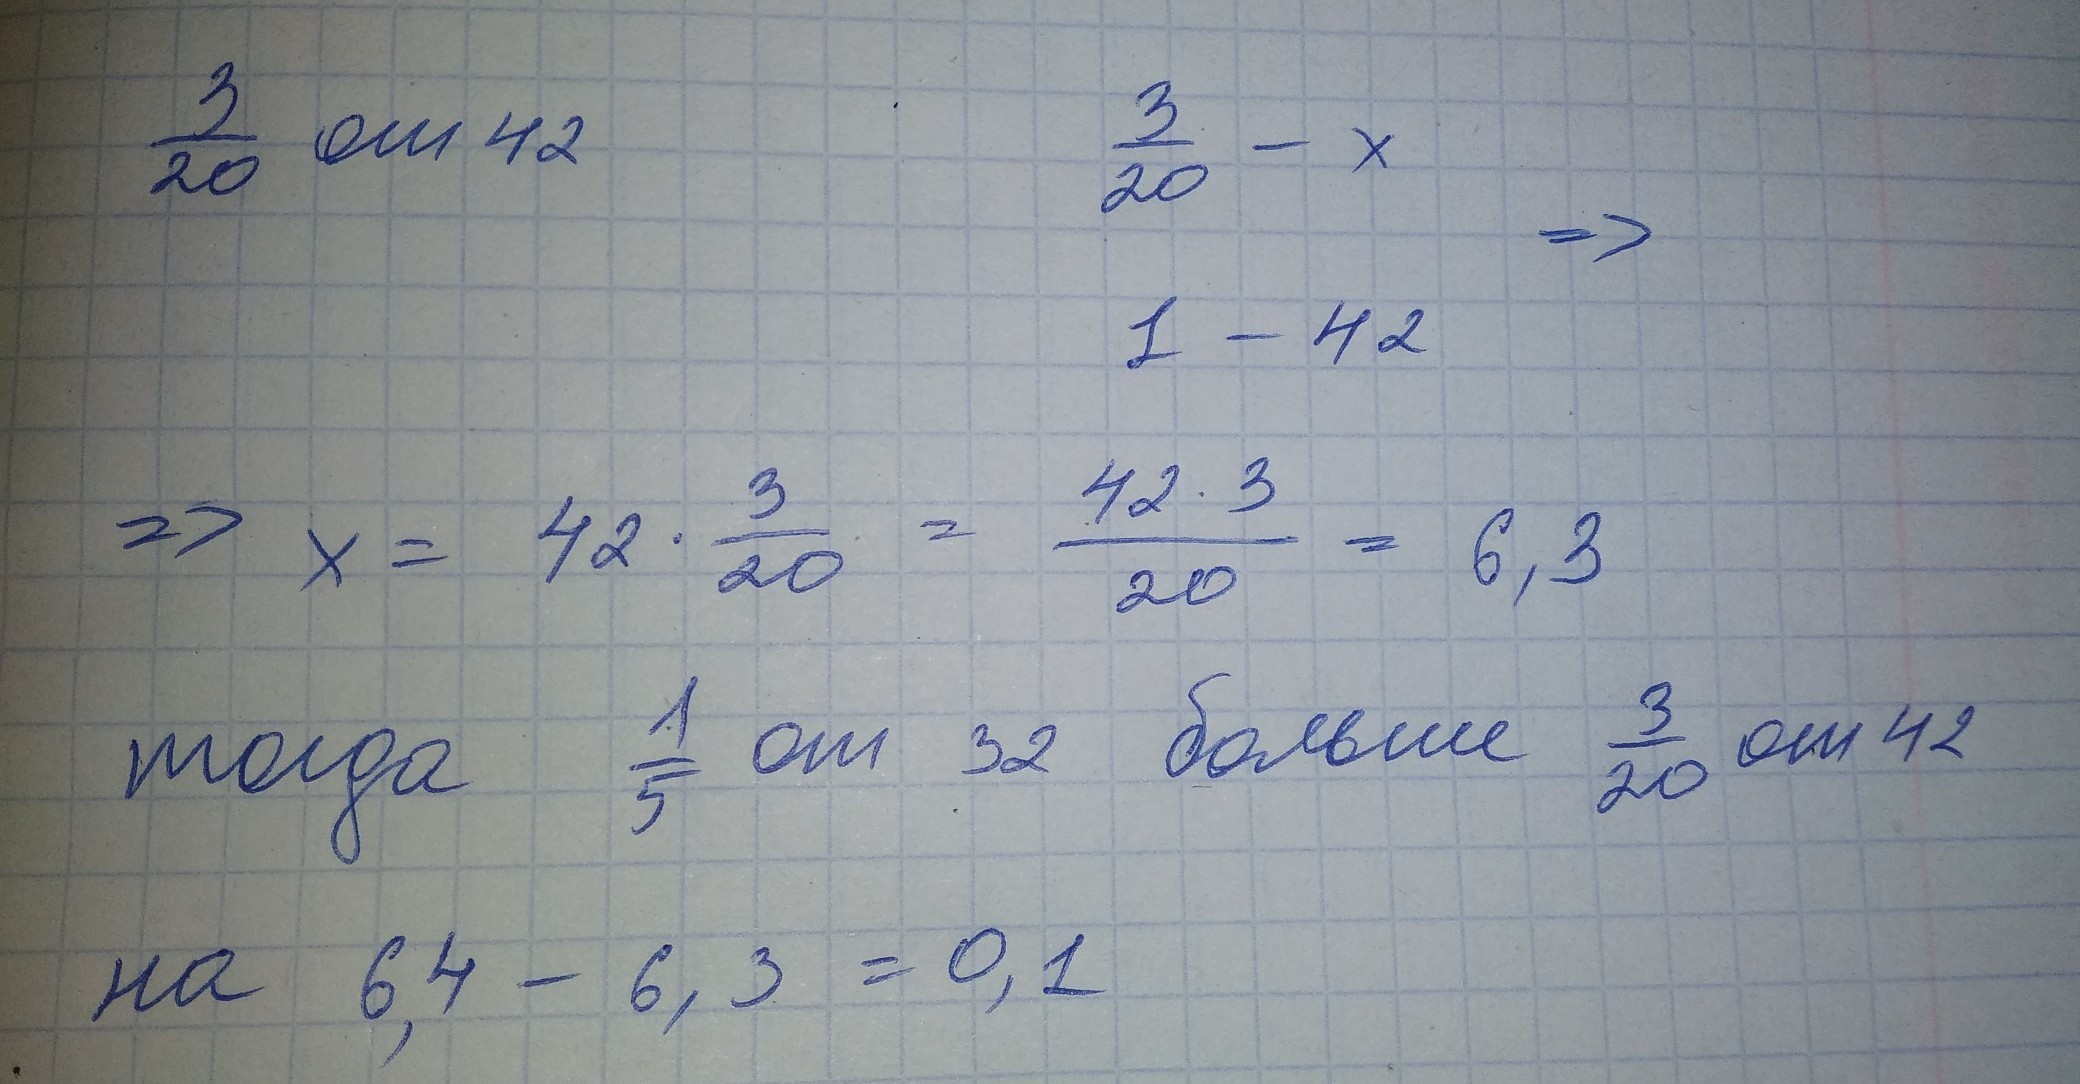 3/20 от 42 3/20 – x
=>
1 – 42
=> x = 42 · 3/20 = 42 · 3/20 = 6,3
тогда 1/5 от 32 больше 3/20 от 42
на 6,4 – 6,3 = 0,1